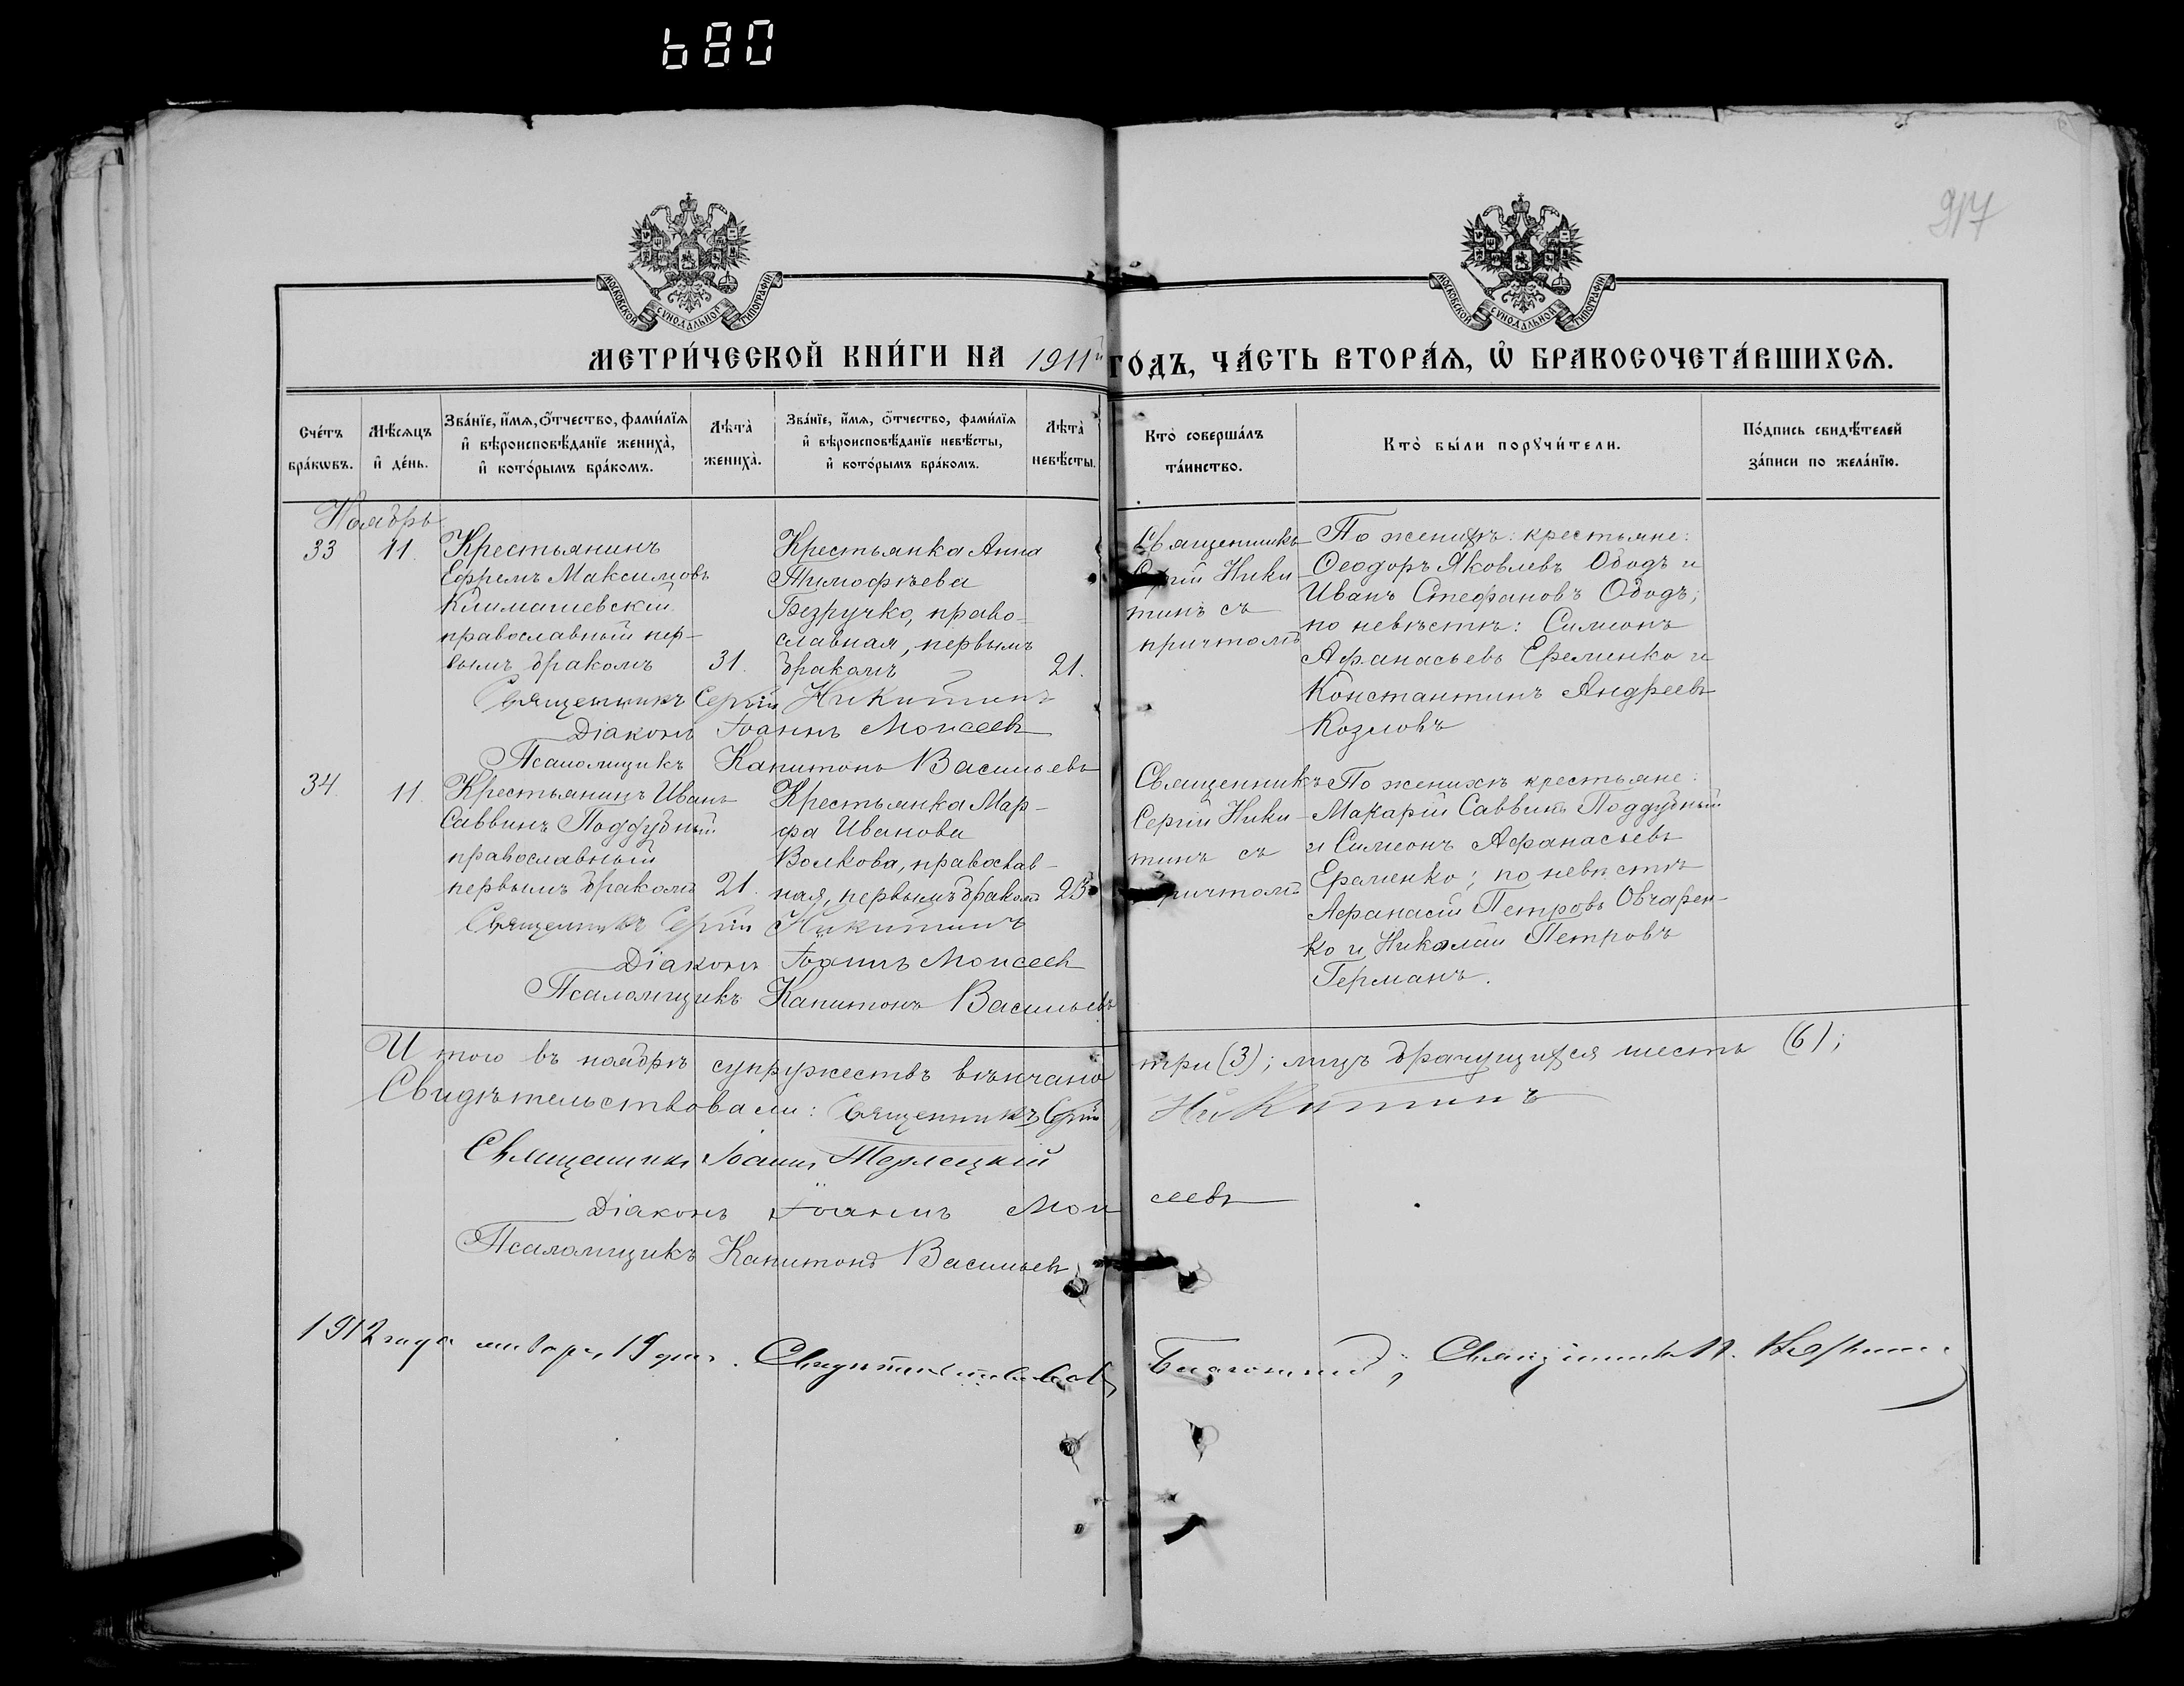 680
917
МОСКОВСКОЙ СУНОДАЛЬНОЙ ТИПОГРАФІИ
МОСКОВСКОЙ СУНОДАЛЬНОЙ ТИПОГРАФІИ
МЕТРИ́ЧЕСКОЙ КНИ́ГИ НА 1911й ГО́ДЪ, ЧА́СТЬ ВТОРА́Я, Ѡ БРАКОСОЧЕТА́ВШИХСЯ.
Сче́тъ бра́кѡвъ.
Мѣ́сяцъ и де́нь.
Зва́нїе, и́мя, ѻ́тчество, фами́лїя и вѣроисповѣ́данїе жениха̀, и кото́рымъ бра́комъ.
Лѣ́та жениха̀.
Зва́нїе, и́мя, ѻ́тчество, фами́лїя и вѣроисповѣ́данїе невѣ́сты, и кото́рымъ бра́комъ.
Лѣ́та невѣ́сты.
Кто̀ соверша́лъ та́инство.
Кто̀ бы́ли порꙋчи́тели.
По́дпись свидѣ́телей за́писи по жела́нїю.
Ноябрь
33
11.
Крестьянинъ
Ефремъ Максимовъ
Климашевскій
православный пер-
вымъ бракомъ
31.
Крестьянка Анна
Тимофѣева
Безручко, право-
славная, первымъ
бракомъ
21.
Священникъ
Сергій Ники
тинъ съ
причтомъ
По женихѣ: крестьяне:
Ѳеодоръ Яковлевъ Ободъ и
Иванъ Стефановъ Ободъ;
по невѣстѣ: Симеонъ
Афанасьевъ Еременко и
Константинъ Андреевъ
Козловъ
Священникъ Сергій Никитинъ
Діаконъ Іоаннъ Моисеевъ
Псаломщикъ Капитонъ Васильевъ
34.
11.
Крестьянинъ Иванъ
Саввинъ Поддубный
православный
первымъ бракомъ
21.
Крестьянка Мар-
фа Иванова
Волкова, православ-
ная, первымъ бракомъ
23
Священникъ
Сергій Ники-
тинъ съ
причтомъ
По женихѣ крестьяне:
Макарій Саввинъ Поддубный
и Симеонъ Афанасьевъ
Ераменко; по невѣстѣ
Афанасій Петровъ Овчарен-
ко и Николай Петровъ
Германъ.
Священникъ Сергій Никитинъ
Діаконъ Іоаннъ Моисеевъ
Псаломщикъ Капитонъ Васильевъ
Итого въ ноябрѣ супружествъ вѣнчано три (3); лицъ брачущихся шесть (6);
Свидѣтельствовали: Священникъ Сергій Никитинъ
Священникъ Іоаннъ Терлецкій
Діаконъ Іоаннъ Моисеевъ
Псаломщикъ Капитонъ Васильевъ
1912 года января 19 дня. Свидѣтельствовалъ Благочинный, Священникъ